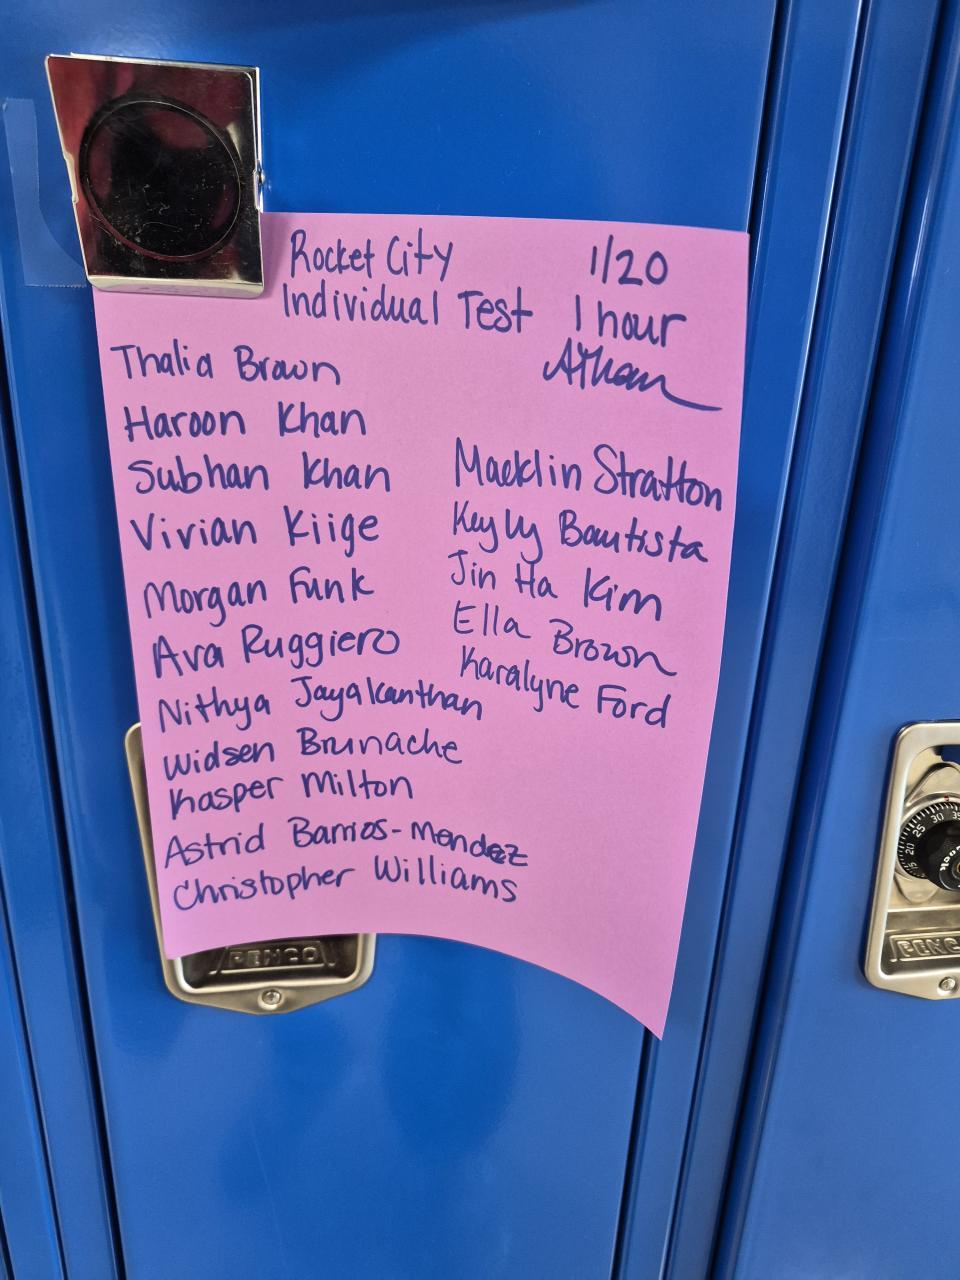 Rocket City 1/20
Individual Test 1 hour
Thalia Brown
Haroon Khan
Subhan Khan
Vivian Kiige
Morgan Funk
Ava Ruggiero
Nithya Jayakanthan
Widsen Brunache
Kasper Milton
Astrid Barrios-Mendez
Christopher Williams
Macklin Stratton
Keyly Bautista
Jin Ha Kim
Ella Brown
Karalyne Ford
PENCO
15 20 25 30 35
PENCO